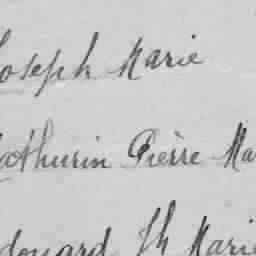 Joseph Marie
Mathurin Pierre Ma
Edouard Jh Marie